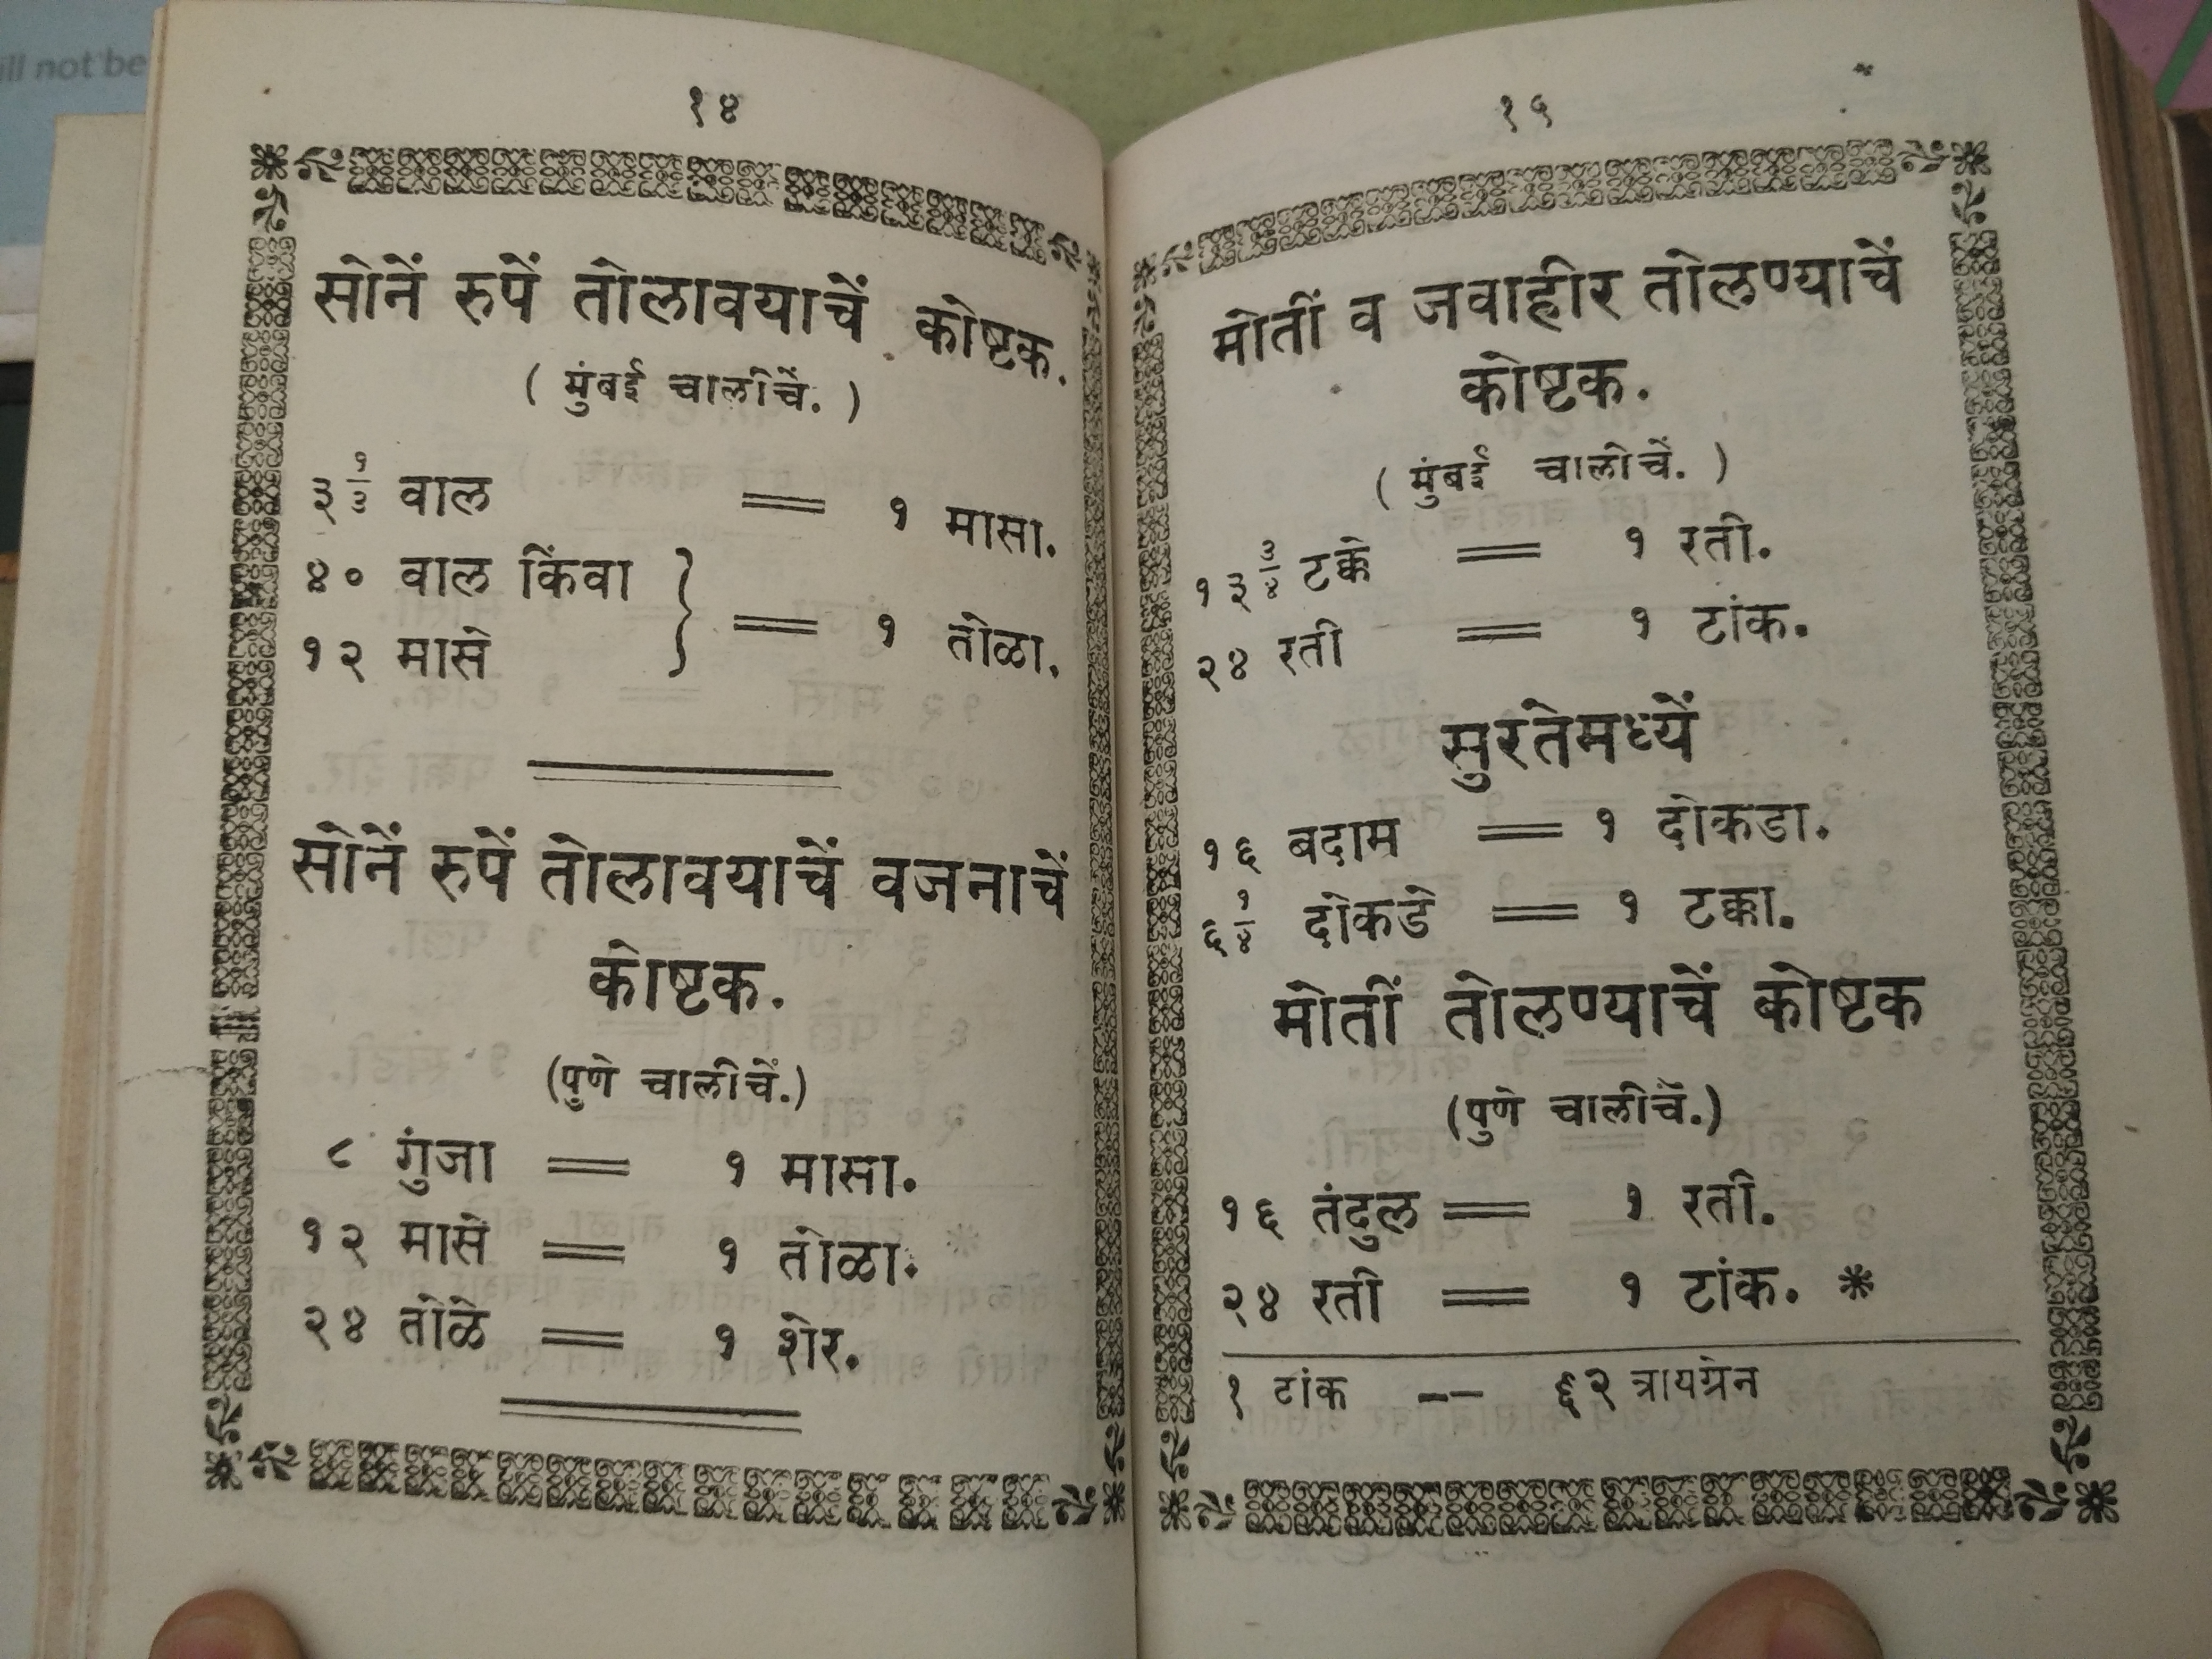 ill not be
१४
सोनें रुपें तोलावयाचें कोष्टक.
( मुंबई चालीचें. )
३ १/३ वाल = १ मासा.
४० वाल किंवा
१२ मासे } = १ तोळा.
सोनें रुपें तोलावयाचें वजनाचें
कोष्टक.
(पुणे चालीचें.)
८ गुंजा = १ मासा.
१२ मासे = १ तोळा.
२४ तोळे = १ शेर.
१५
मोतीं व जवाहीर तोलण्याचें
कोष्टक.
( मुंबई चालीचें. )
१३ ३/४ टक्के = १ रती.
२४ रती = १ टांक.
सुरतेमध्यें
१६ बदाम = १ दोकडा.
६ १/४ दोकडे = १ टक्का.
मोतीं तोलण्याचें कोष्टक
(पुणे चालीचें.)
१६ तंदुल = १ रती.
२४ रती = १ टांक. *
१ टांक -- ६२ त्रायग्रेन